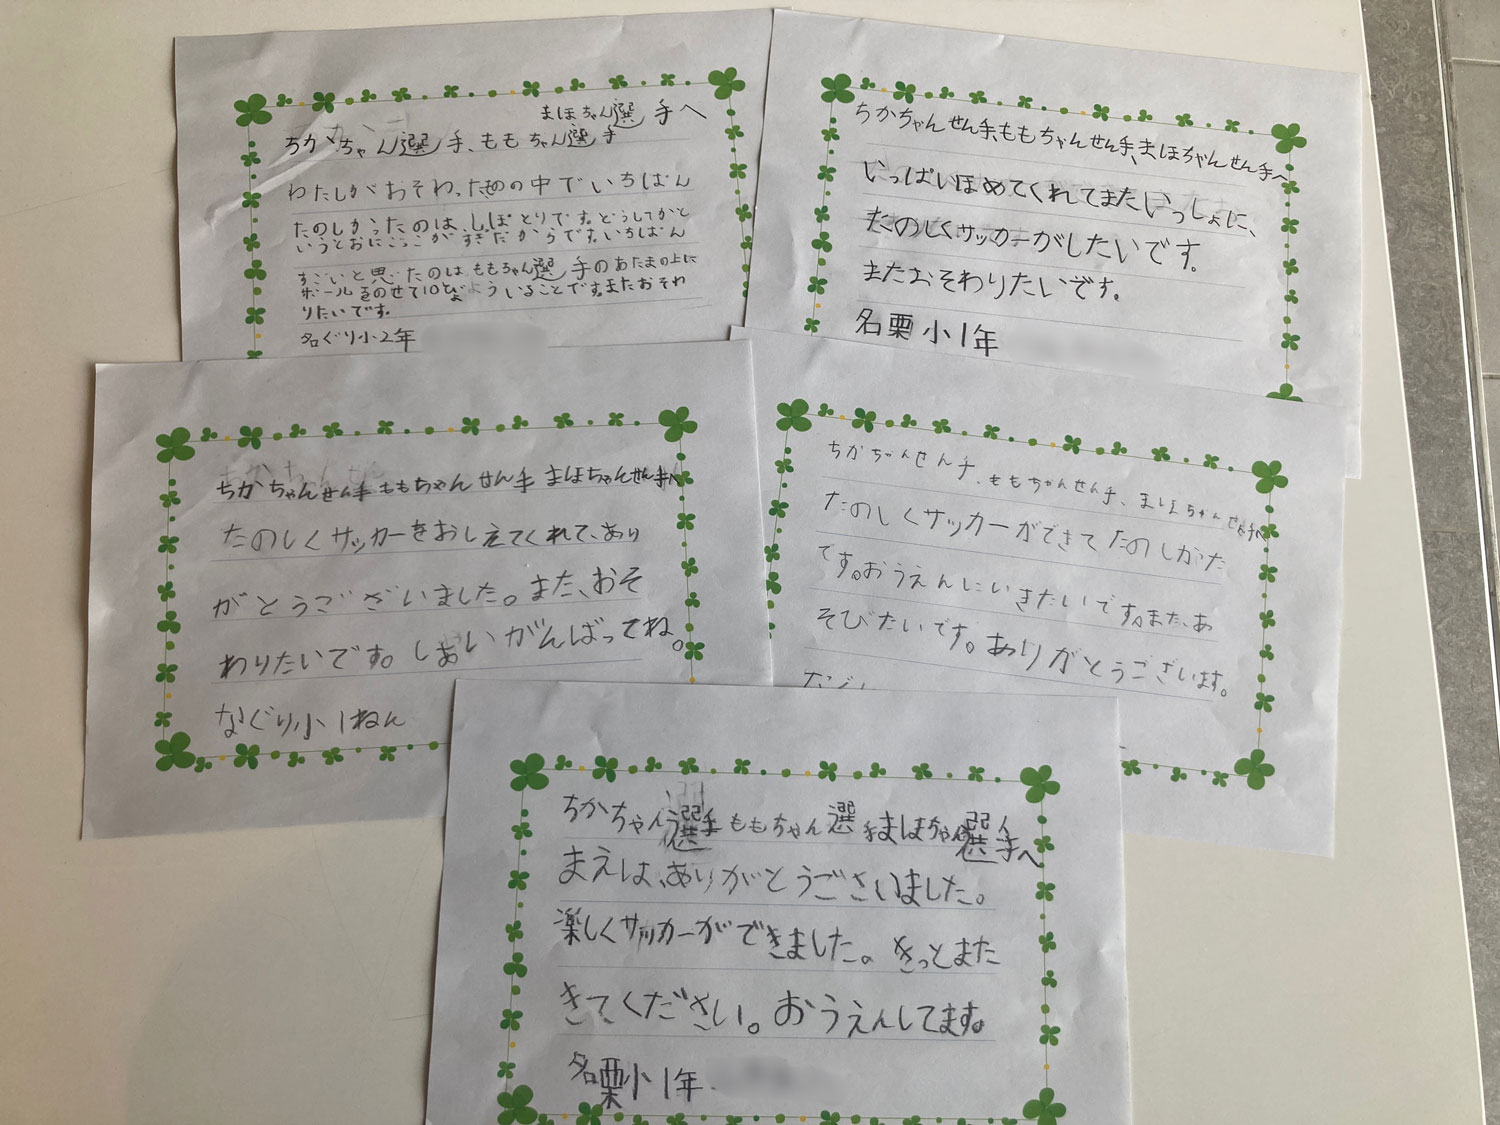 まほちゃん選手へ
ちかちゃん選手、ももちゃん選手
わたしがおそわったの中でいちばん
たのしかったのは、しっぽとりです。どうしてかと
いうとおにごっこがすきだからです。いちばん
すごいと思ったのは、ももちゃん選手のあたまの上に
ボールをのせて10びょういることです。またおそわ
りたいです。
名ぐり小2年
ちかちゃんせん手、ももちゃんせん手、まほちゃんせん手へ
いっぱいほめてくれてまたいっしょに、
たのしくサッカーがしたいです。
またおそわりたいです。
名栗小1年
ちかちゃんせん手 ももちゃんせん手 まほちゃんせん手へ
たのしくサッカーをおしえてくれて、あり
がとうございました。また、おそ
わりたいです。しあいがんばってね。
なぐり小1ねん
ちかちゃんせん手、ももちゃんせん手、まほちゃんせん手へ
たのしくサッカーができてたのしかった
です。おうえんにいきたいです。また、あ
そびたいです。ありがとうございます。
ちかちゃん選手ももちゃん選手まほちゃん選手へ
まえは、ありがとうございました。
楽しくサッカーができました。きっとまた
きてください。おうえんしてます。
名栗小1年